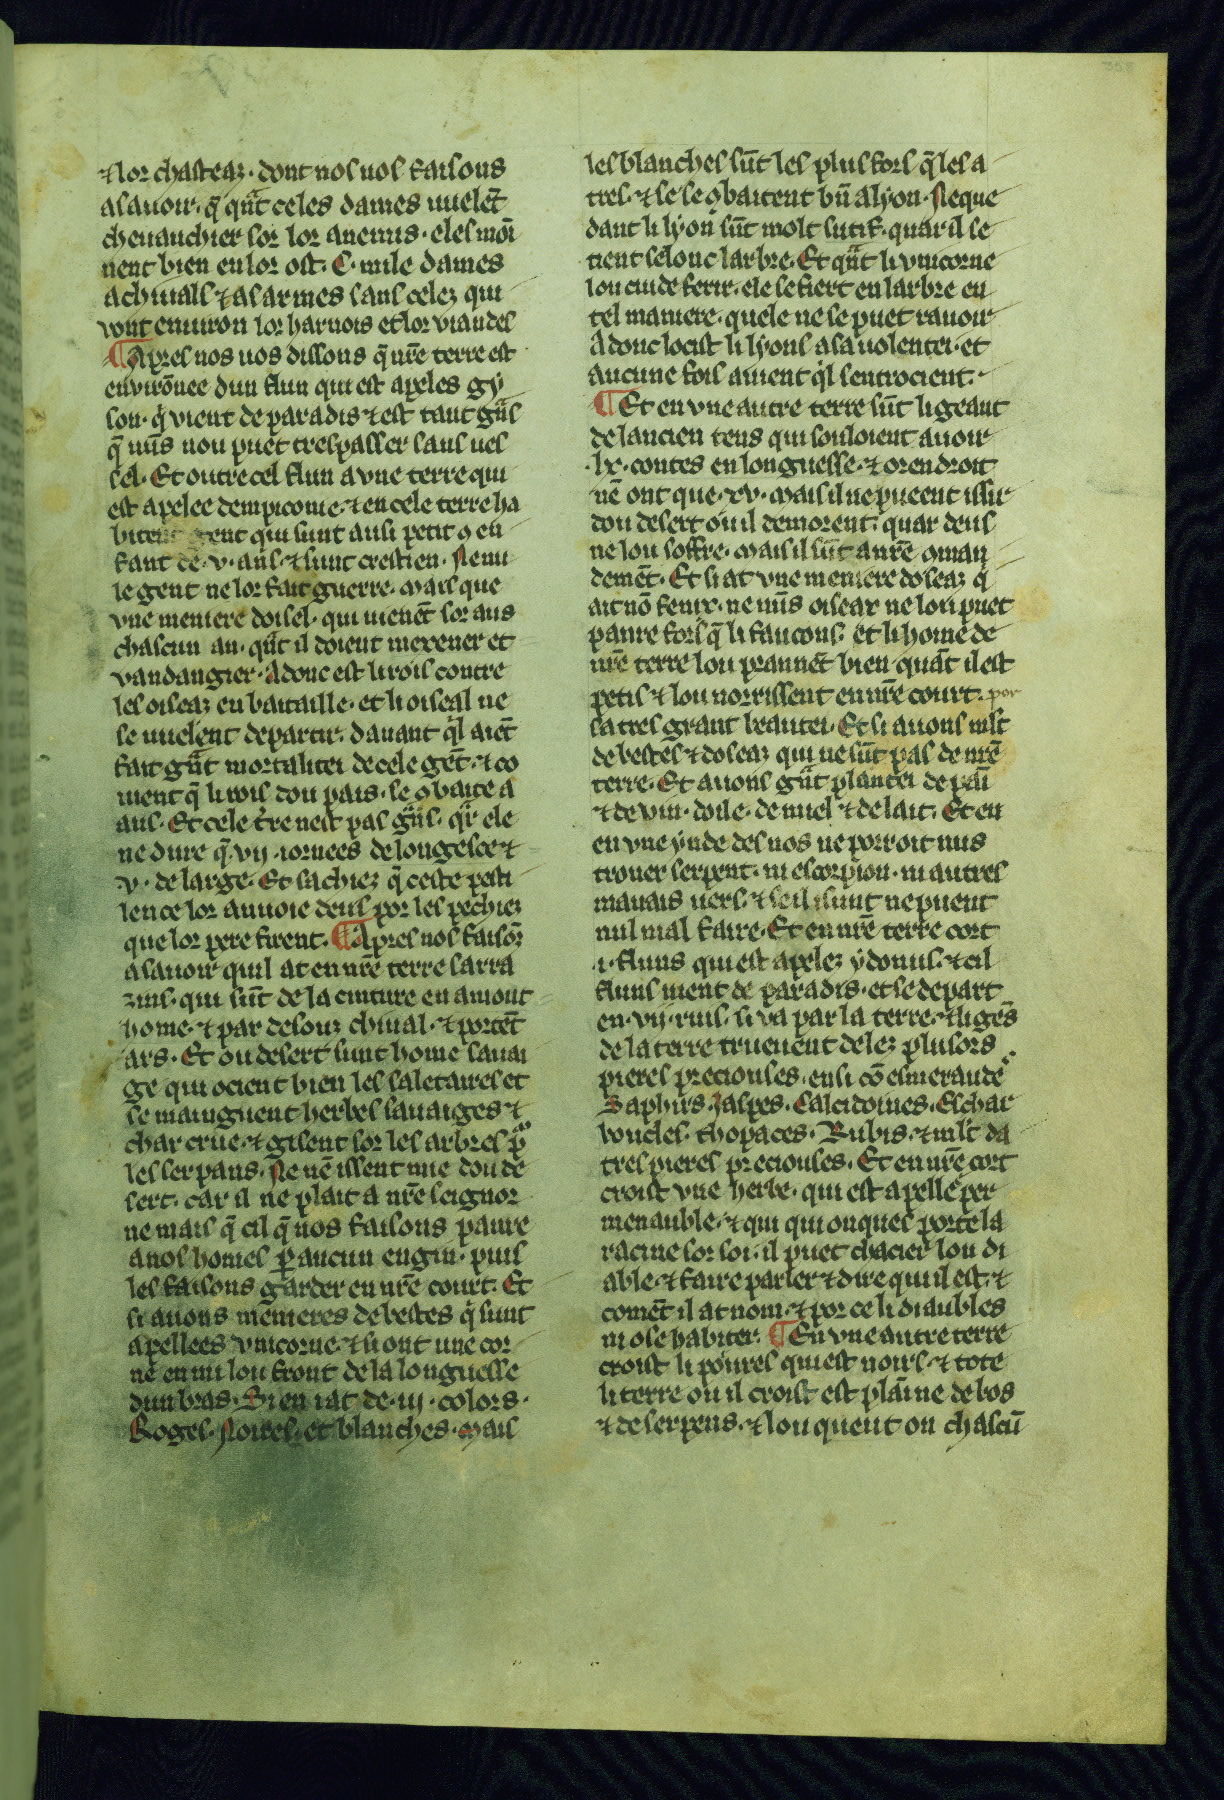 ⁊ lor chasteaz. dont nos uos faisons
a sauoir. q̄ qn̄t celes dames uuelēt
cheuauchier sor lor anemis. eles moi
nent bien en lor ost. C. mile dames
a chiuals ⁊ as armes sans celez qui
vont enuiron lor harnois et lor viandes
¶ Apres nos uos dissons q̄ nr̄e terre est
enuirōnee dun flun qui est apeles gy
son. q̇ vient de paradis ⁊ est tant gn̄s
q̄ nuls nou puet trespasser sans ues
sel. Et outre cel flun a vne terre qui
est apelee dempiconie. ⁊ en cele terre ha
bitent gent qui sunt ausi petit ꝯ en
fant de .v. ans. ⁊ sunt crestien. Ne nu
le gent ne lor fait guerre. mais que
vne meniere doisel. qui uienēt sor aus
chascun an. qn̄t il doient mexener et
vandangier. Adonc est li rois contre
les oiseaz en bataille. et li oiseal ne
se uuelent departir. dauant q̇l aiēt
fait gn̄t mortalitei de cele gēt. ⁊ co
uient q̄ li rois dou pais. se ꝯbaite a
aus. Et cele tr̄e nest pas gn̄s. qr̄ ele
ne dure q̄ .vij. iornees de longesce ⁊
.v. de large. Et sachiez q̄ ceste pesti
lence lor anuoie deus por les pechiez
que lor pere firent. ¶ Apres nos faisōz
a sauoir quil at en nr̄e terre sarra
zins. qui sūt de la cinture en amont
home. ⁊ par desouz chiual. ⁊ portēt
ars. Et ou desert sunt home sauai
ge qui ocient bien les saletaires et
se mainguent herbes sauaiges ⁊
char crue. ⁊ gisent sor les arbres p̄
les serpans. Ne nē issent mie dou de
sert. car il ne plait a nr̄e seignor
ne mais q̄ cil q̄ nos faisons panre
a nos homes ꝑ aucun engin. puis
les faisons garder en nr̄e court. Et
si auons mēnieres de bestes q̇ sunt
apellees vnicorne. ⁊ si ont une cor
ne en mi lou front de la longuesse
dun bras. Si en i at de .iij. colors.
Roges. Noires. et blanches. mais
les blanches sūt les plus fors q̄ les a
tres. ⁊ se se ꝯbattent bn̄ a lyon. Neque
dant li lyon sūt molt sutif. quar il se
tient selonc larbre. Et qn̄t li vnicorne
lou cuide ferir. ele se fiert en larbre en
tel maniere. quele ne se puet rauoir
Adonc locist li lyons a sa uolentei. et
aucune fois auient q̇l sentrocient.
¶ Et en vne autre terre sūt li geant
de lancien tens qui souloient auoir
.lx. coutes en longuesse. ⁊ orendroit
nē ont que .xv. mais il ne pueent issir
dou desert ou il demorent. quar deus
ne lou soffre. mais il sūt a nr̄e ꝯman
demēt. Et si at vne meniere doseaz q̇
ait nō fenix. ne nūs oiseax ne lou puet
panre fors q̄ li faucons. et li home de
nr̄e terre lou prannēt bien quāt il est
petis ⁊ lou norrissent en nr̄e court. por
sa tres grant beautei. Et si auons mlt
de bestes ⁊ doseaz qui ne sūt pas de nr̄e
terre. Et auons gn̄t plantei de pan̄
⁊ de vin. doile. de miel ⁊ de lait. Et en
en vne ynde des nos ne porroit nus
trouer serpent. ni escorpion. ni autres
mauais uers. ⁊ se il i sunt ne puent
nul mal faire. Et en nr̄e terre cort
.i. fluns qui est apelez ydonus. ⁊ cil
fluns uient de paradis. et se depart
en .vij. ruis. si va par la terre. ⁊ li gēs
de la terre trueuent delez plusors
pieres preciouses. ensi cō esmeraude.
Saphirs. Jaspes. Calcidoines. Eschar
voucles. thopaces. Rubis. ⁊ mlt da
tres pieres preciouses. Et en nr̄e cort
croist vne herbe. qui est apelle per
menauble. ⁊ qui qui onques porte la
racine sor soi. il puet chacier lou di
able. ⁊ faire parler ⁊ dire qui il est. ⁊
comēt il at nom. ⁊ por ce li diaubles
ni ose habiter. ¶ En vne autre terre
croist li poures qui est noirs. ⁊ tote
li terre ou il croist est plainne de bos
⁊ de serpens. ⁊ lou queut on chascū